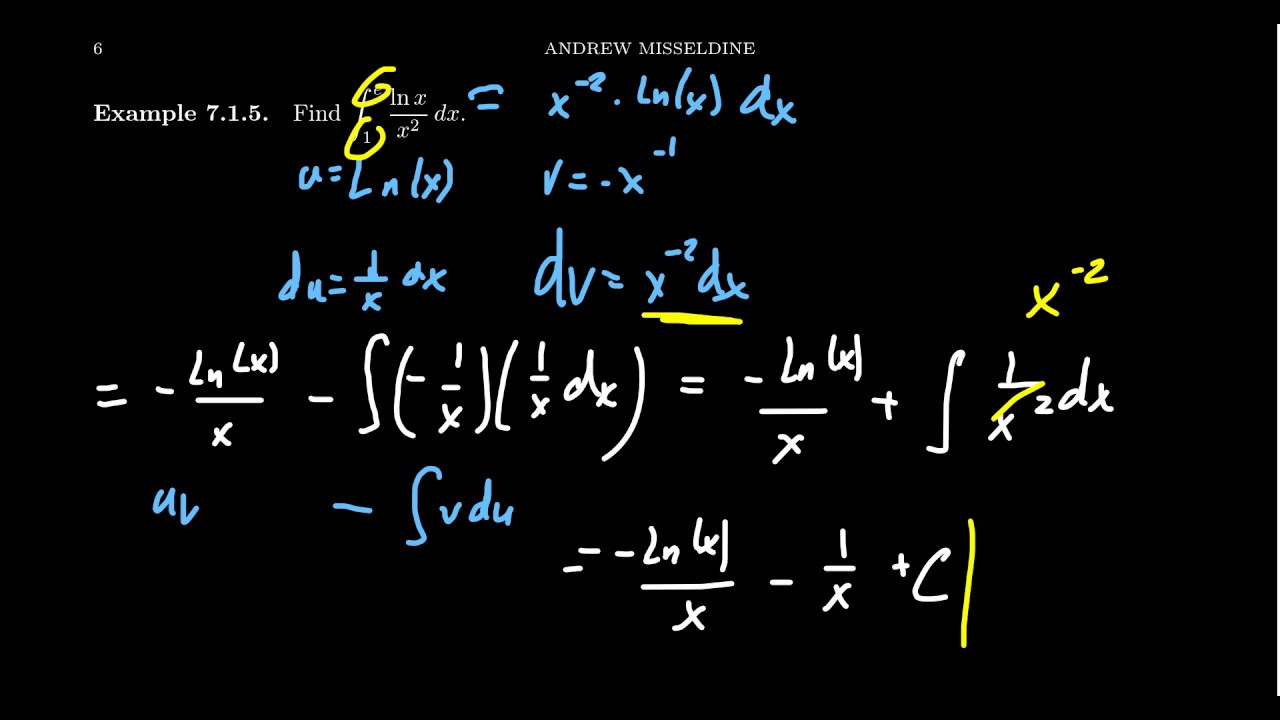 6 ANDREW MISSELDINE
Example 7.1.5. Find ∫₁ᵉ ln x / x² dx. = x⁻² · Ln(x) dx
u = Ln(x) v = -x⁻¹
du = 1/x dx dv = x⁻² dx
x⁻²
= - Ln(x)/x - ∫(-1/x)(1/x dx) = - Ln(x)/x + ∫ 1/x² dx
uv - ∫ v du
= -Ln(x)/x - 1/x + C |